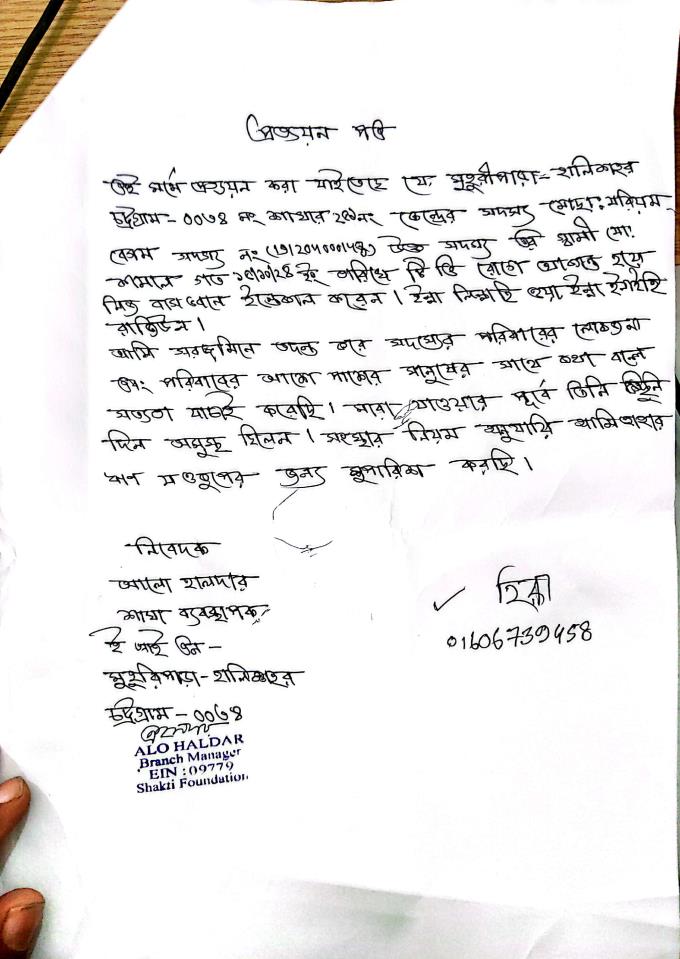 প্রত্যয়ন পত্র
এই মর্মে প্রত্যয়ন করা যাইতেছে যে, মুহুরীপাড়া-হালিশহর
চট্টগ্রাম-০০৩৪ নং শাখার ২৬নং কেন্দ্রের সদস্য মোছা: মরিয়ম
বেগম সদস্য নং উক্ত সদস্য এর স্বামী মো:
কামাল গত ইং তারিখে টি বি রোগে আক্রান্ত হয়ে
নিজ বাস ভবনে ইন্তেকাল করেন। ইন্না লিল্লাহি ওয়া ইন্না ইলাইহি
রাজিউন।
আমি সরজমিনে তদন্ত করে সদস্যের পরিবারের লোকজন
এবং পরিবারের আশে পাশের মানুষের সাথে কথা বলে
সত্যতা যাচাই করেছি। মারা যাওয়ার পূর্বে তিনি
দিন অসুস্থ ছিলেন। সংস্থার নিয়ম অনুযায়ি আমি তাহার
ঋণ মওকুপের জন্য সুপারিশ করছি।
নিবেদক
আলো হালদার
শাখা ব্যবস্থাপক
ই আই এন-
মুহুরিপাড়া-হালিশহর
চট্টগ্রাম-০০৩৪
ALO HALDAR
Branch Manager
EIN : 09779
Shakti Foundation
01606739458